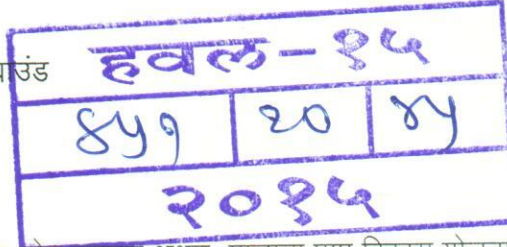 पाउंड
हवल-१५
४५१ २० ४५
२०१५